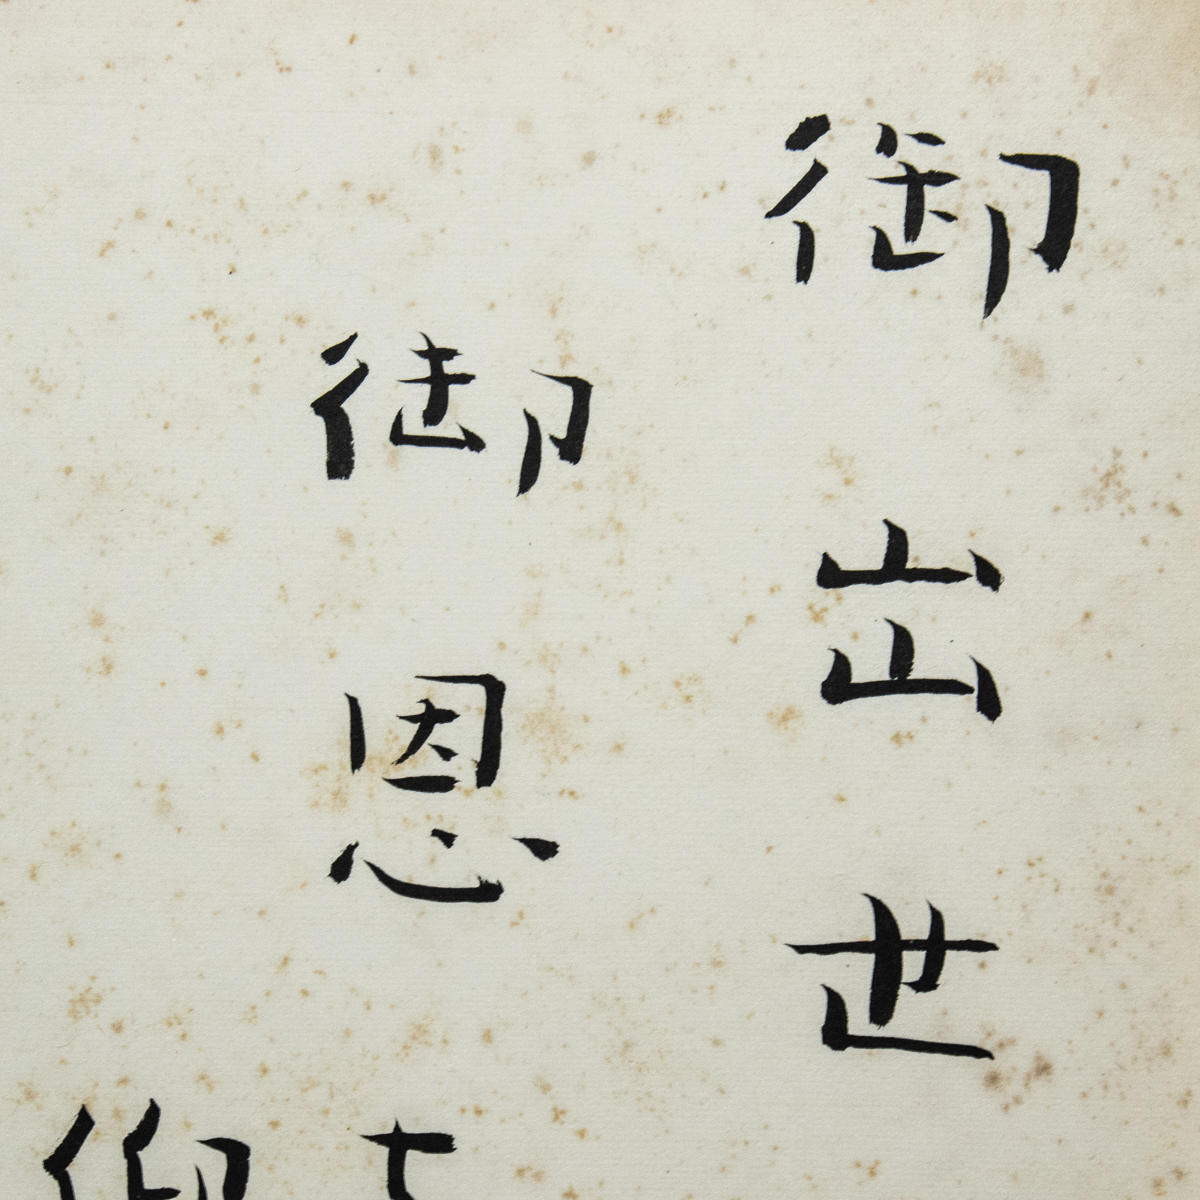 御出世
御恩
御